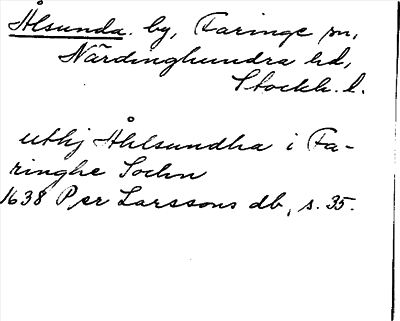 Ålsunda. by, Faringe sn,
Närdinghundra hd,
Stockh. l.
uthj Åhlsundha i Fa-
ringhe Sochn
1638 Per Larssons db, s. 35.